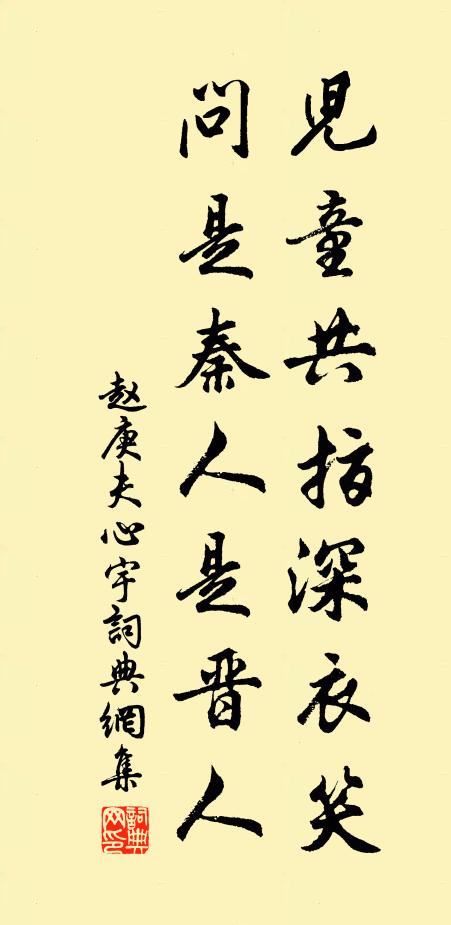 兒童共指深衣笑
問是秦人是晋人
赵庚夫心宇詞典網集
詞典网印